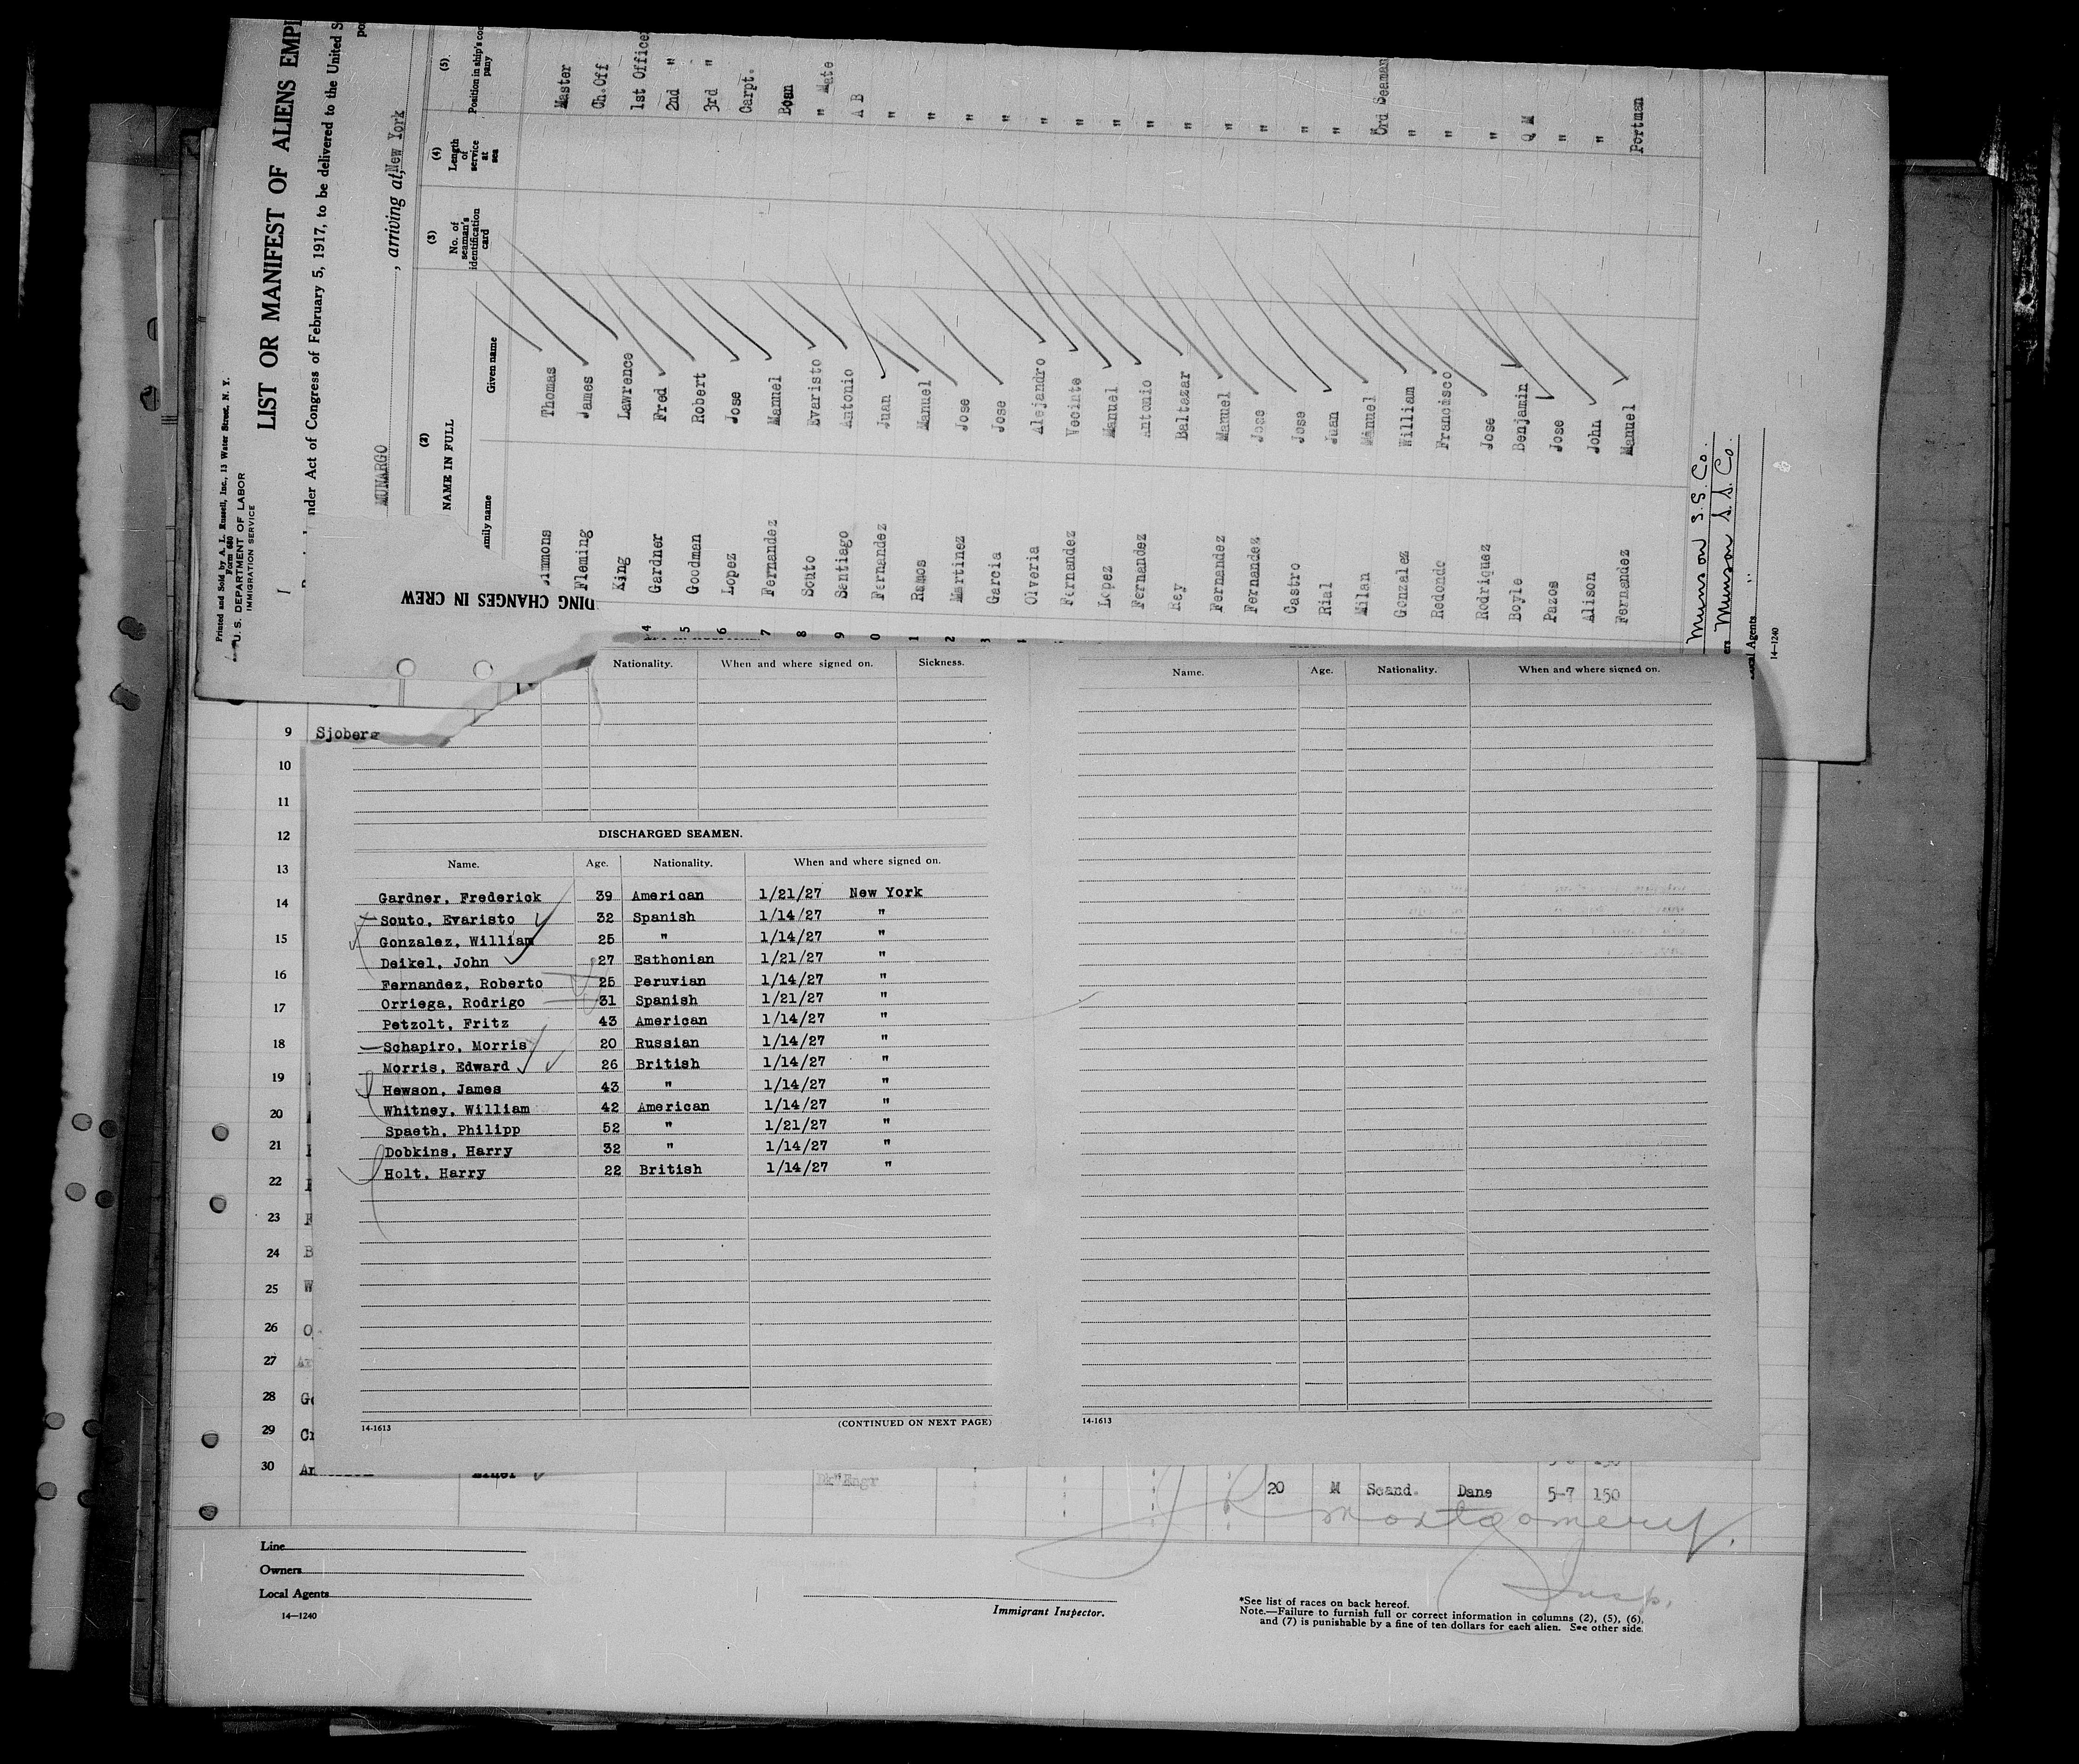 Printed and Sold by A. L. Russell, Inc., 13 Water Street, N. Y.
Form 680
U. S. DEPARTMENT OF LABOR
IMMIGRATION SERVICE
LIST OR MANIFEST OF ALIENS
nder Act of Congress of February 5, 1917, to be delivered to the United
MUNARGO , arriving at New York
(2) (3) (4) (5)
NAME IN FULL No. of seaman's identification card Length of service at sea Position in ship's
Given name
Simmons Thomas Master
Fleming James Ch.Off
King Lawrence 1st Officer
4 Gardner Fred 2nd "
5 Goodman Robert 3rd "
6 Lopez Jose Carpt.
7 Fernandez Manuel Bosn
8 Souto Evaristo " Mate
9 Santiago Antonio A B
0 Fernandez Juan "
1 Ramos Manuel "
2 Martinez Jose "
Garcia Jose "
Olveria Alejandro "
Fernandez Vecinte "
Lopez Manuel "
Fernandez Antonio "
Ray Baltazar "
Fernandez Manuel "
Fernandez Jose "
Castro Jose "
Rial Juan "
Milan Manuel Ord Seaman
Gonzalez William "
Redondo Francisco "
Rodriquez Jose "
Boyle Benjamin Q M
Pazos Jose "
Alison John "
Fernandez Manuel Portman
Munson S.S. Co.
Munson S.S. Co.
Agents "
14—1240
DING CHANGES IN CREW
Nationality. When and where signed on. Sickness.
Name. Age. Nationality. When and where signed on.
9 Sjoberg
10
11
12
13
14
15
16
17
18
19
20
21
22
23
24
25
26
27
28
29
30
DISCHARGED SEAMEN.
Name. Age. Nationality. When and where signed on.
Gardner, Frederick 39 American 1/21/27 New York
Souto, Evaristo 32 Spanish 1/14/27 "
Gonzalez, William 25 " 1/14/27 "
Deikel, John 27 Esthonian 1/21/27 "
Fernandez, Roberto 25 Peruvian 1/14/27 "
Orriega, Rodrigo 31 Spanish 1/21/27 "
Petzolt, Fritz 43 American 1/14/27 "
Schapiro, Morris 20 Russian 1/14/27 "
Morris, Edward 26 British 1/14/27 "
Hewson, James 43 " 1/14/27 "
Whitney, William 42 American 1/14/27 "
Spaeth, Philipp 52 " 1/21/27 "
Dobkins, Harry 32 " 1/14/27 "
Holt, Harry 22 British 1/14/27 "
14-1613 (CONTINUED ON NEXT PAGE) 14-1613
20 M Scand. Dane 5-7 150
Montgomery
Insp.
Line
Owners
Local Agents
14—1240
Immigrant Inspector.
*See list of races on back hereof.
Note.—Failure to furnish full or correct information in columns (2), (5), (6),
and (7) is punishable by a fine of ten dollars for each alien. See other side.